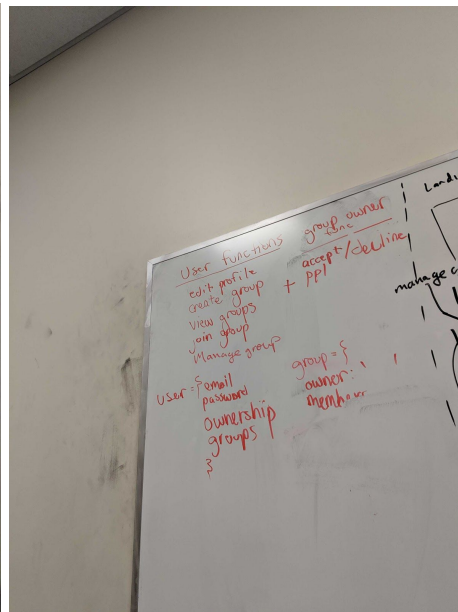 User functions
edit profile
create group
view groups
join group
Manage group
group owner
func
+ accept/decline
ppl
user = {email
password
ownership
groups
}
group = {
owner: ' '
manage